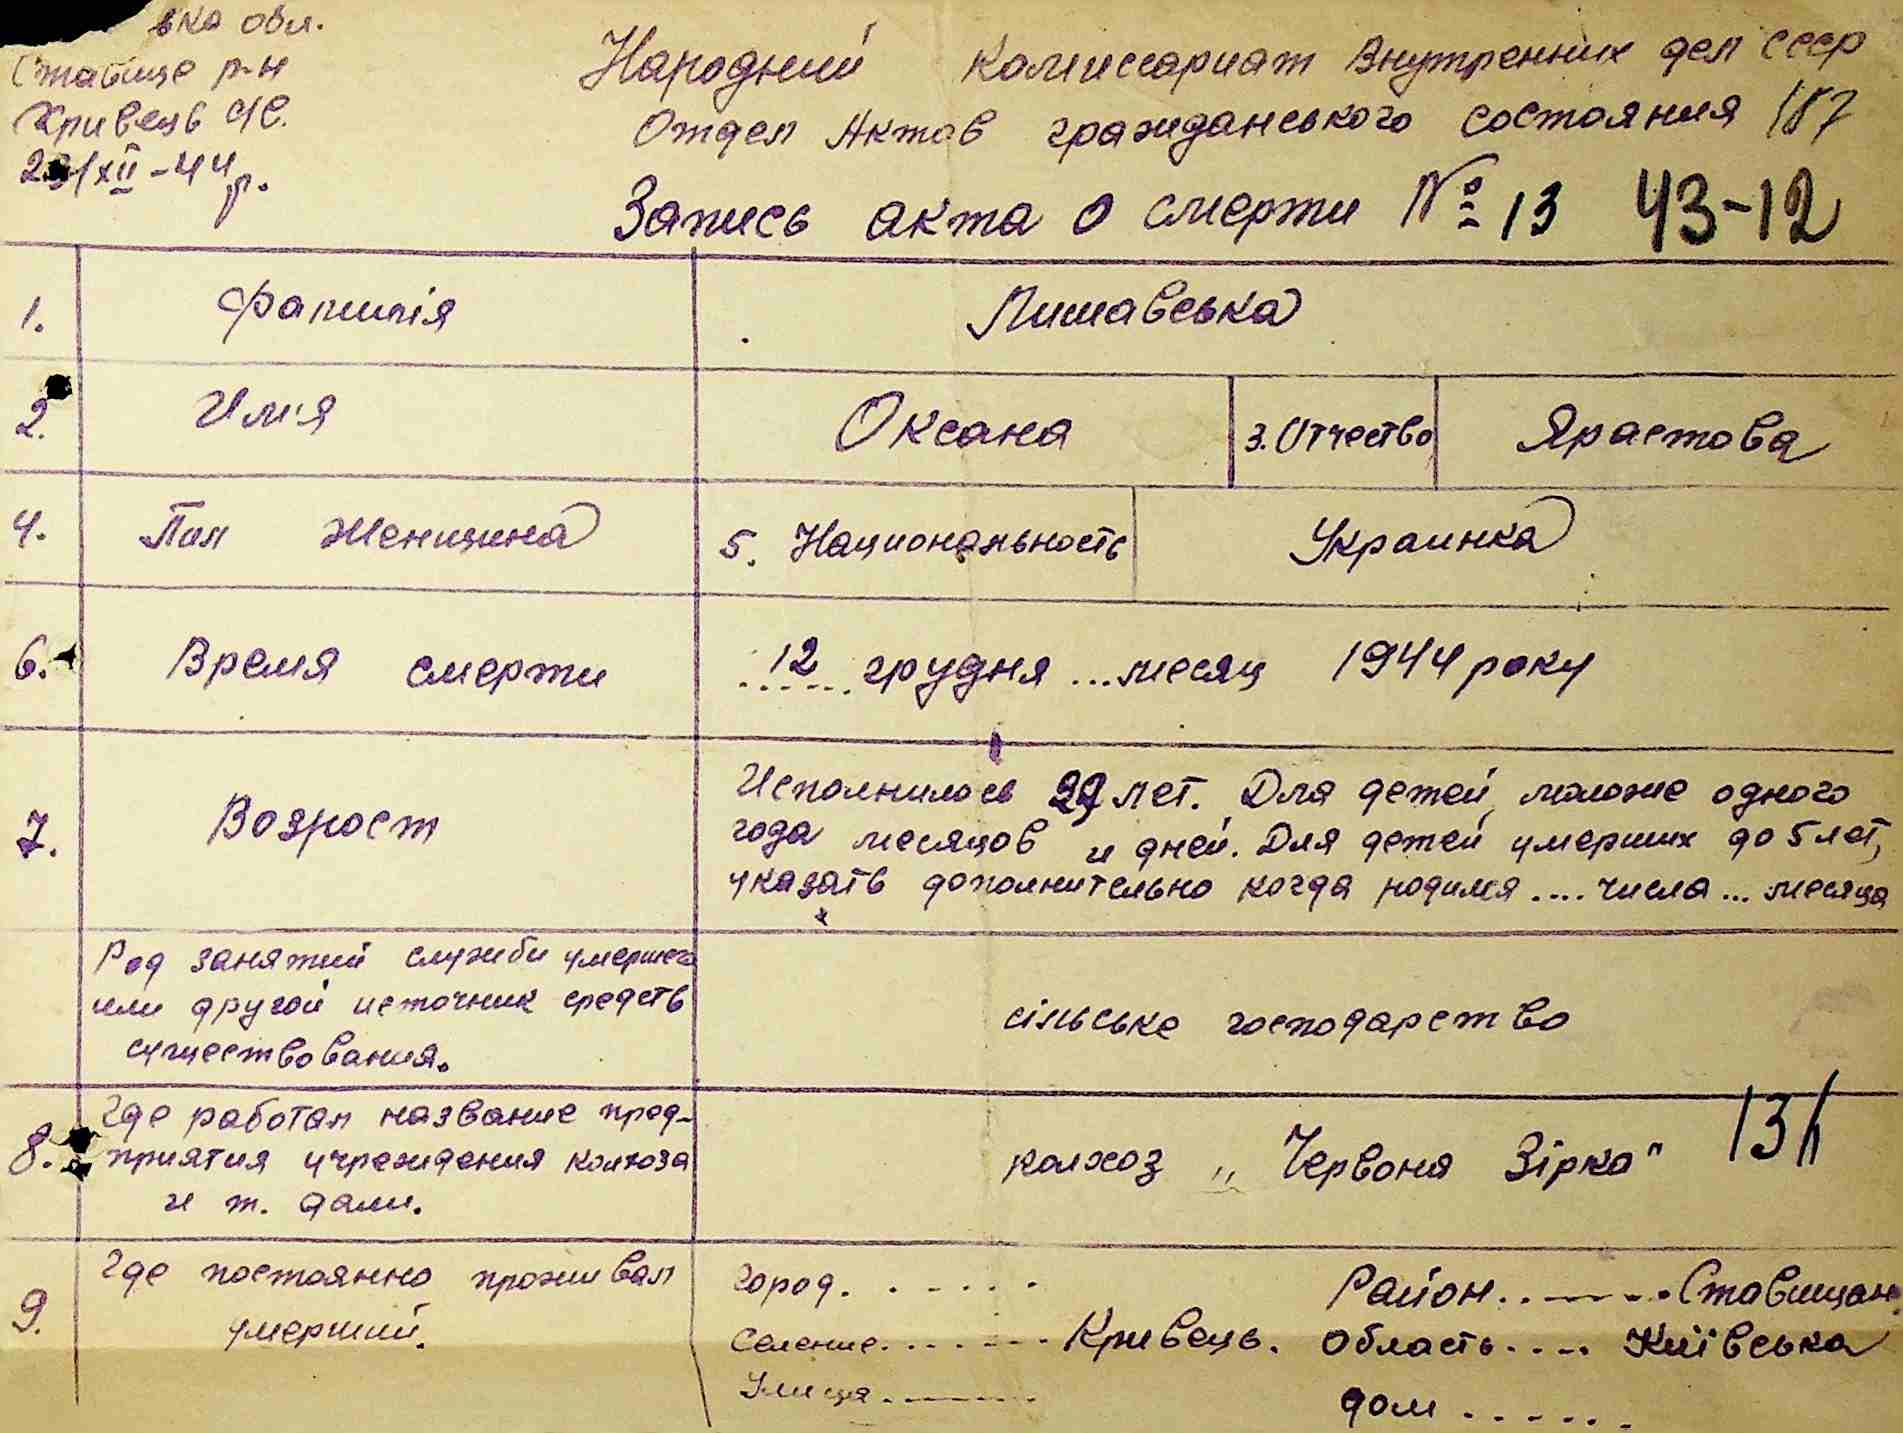 ька обл.
Ставище р-н
Кривець С/С.
/XII-44 р.
Народний Комиссариат Внутренних дел СССР
Отдел Актов гражиданського состояния 187
Запись акта о смерти № 13 43-12
1. Фамилія Лишавська
2. Имя Оксана 3. Отчество Ярастова
4. Пол Женщина 5. Национальность Украинка
6. Время смерти 12 грудня ... месяц 1944 року
7. Возраст
Исполнилось лет. Для детей моложе одного
года месяцов и дней. Для детей умерших до 5 лет,
указать дополнительно когда родился .... числа ... месяца
Род занятий служби умершего
или другой источник средств
существования.
сільське господарство
8. Где работал название пред-
приятия учреждения колхоза
и т. дали.
колхоз „Червоня Зірка"
9. Где постоянно проживал
умерший.
Город. ..... Район. ..... Ставищан.
Селение. ..... Кривець. Область .... Київська
Улица ..... дом ......